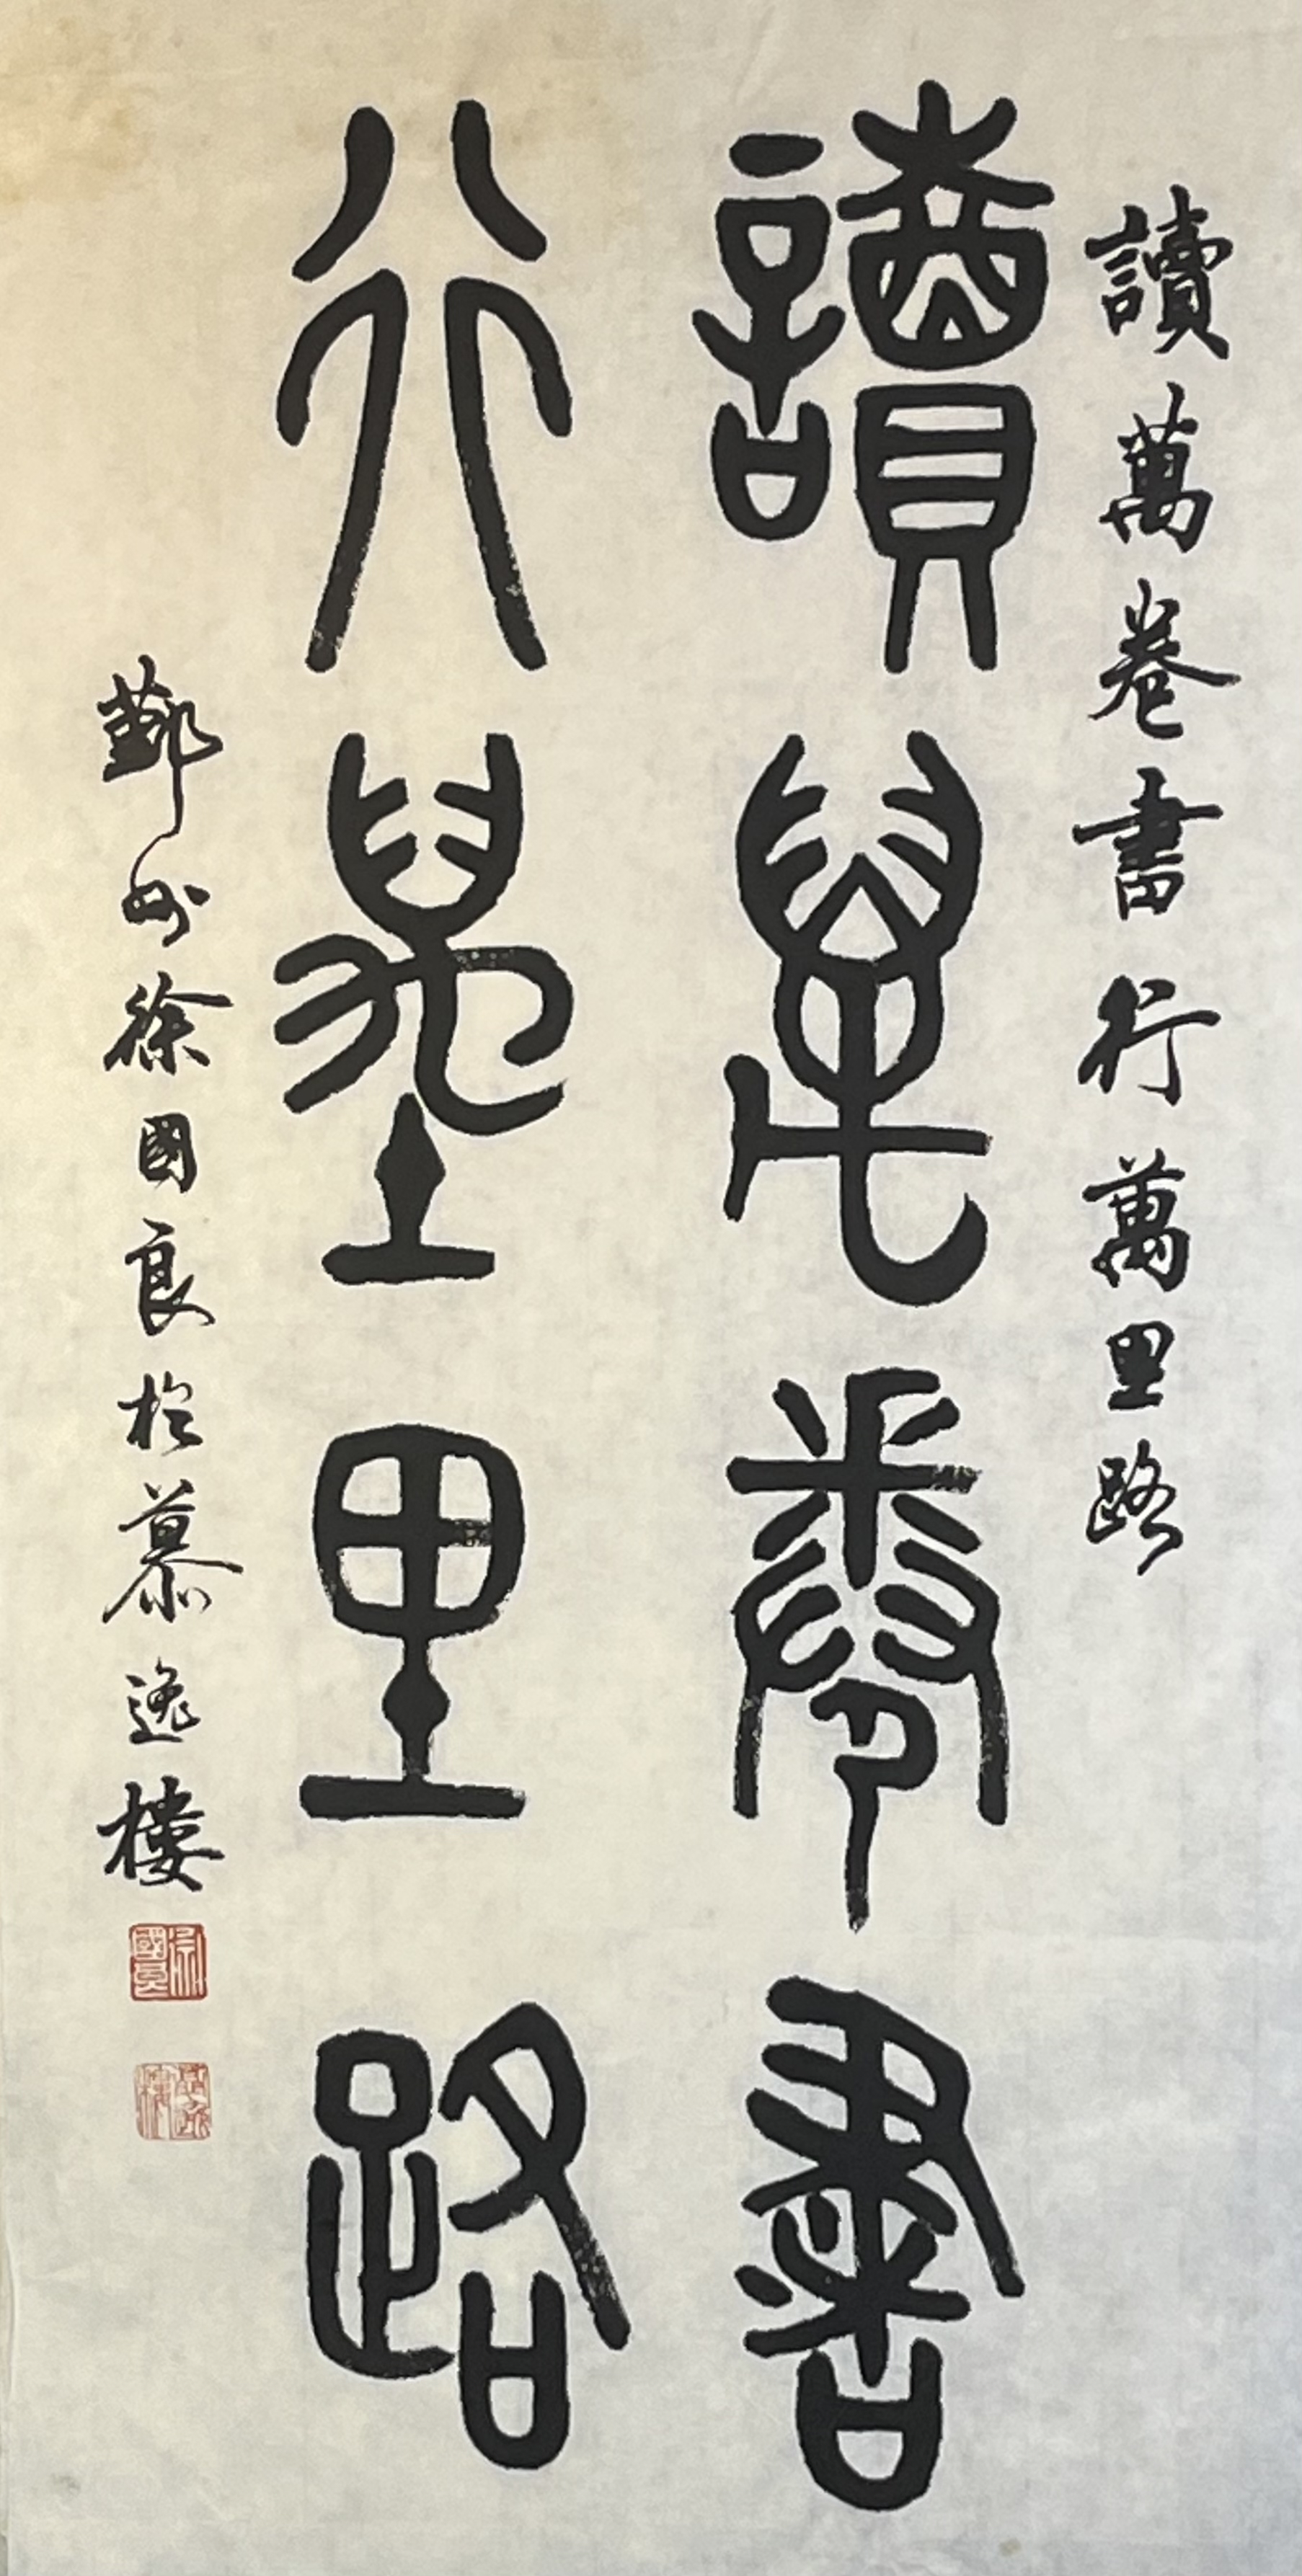 讀萬卷書行萬里路
讀萬卷書
行萬里路
鄞州徐國良於慕逸樓